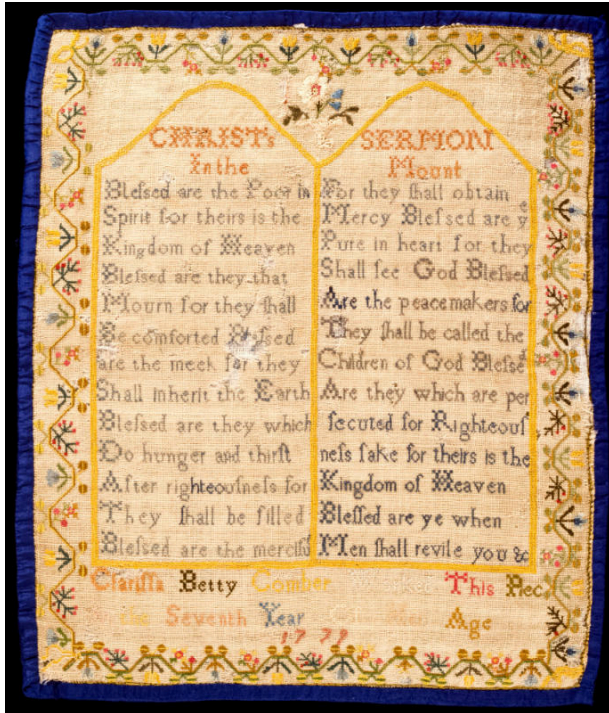 CHRISTs
In the
Bleſsed are the Poor in
Spirit for theirs is the
Kingdom of Heaven
Bleſsed are they that
Mourn for they ſhall
Be comforted Bleſsed
are the meek for they
Shall inherit the Earth
Bleſsed are they which
Do hunger and thirſt
After righteouſneſs for
They ſhall be filled
Bleſsed are the merciful
SERMON
Mount
For they ſhall obtain
Mercy Bleſsed are ye
Pure in heart for they
Shall ſee God Bleſsed
Are the peacemakers for
They ſhall be called the
Children of God Bleſse
Are they which are per
ſecuted for Righteouſ
neſs ſake for theirs is the
Kingdom of Heaven
Bleſſed are ye when
Men ſhall revile you &
Clariſſa Betty Comber This Piec
the Seventh Year Age
1779